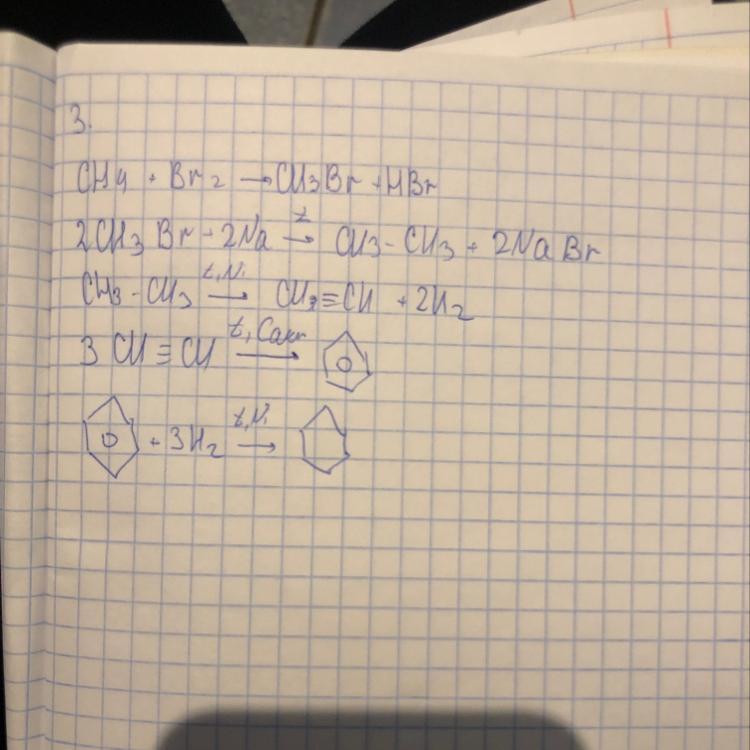 3.
CH4 + Br2 → CH3Br + HBr
2CH3Br + 2Na t→ CH3 - CH3 + 2NaBr
CH3 - CH3 t, Ni→ CH≡CH + 2H2
3 CH ≡ CH t, Cакт→
+ 3H2 t, Ni→